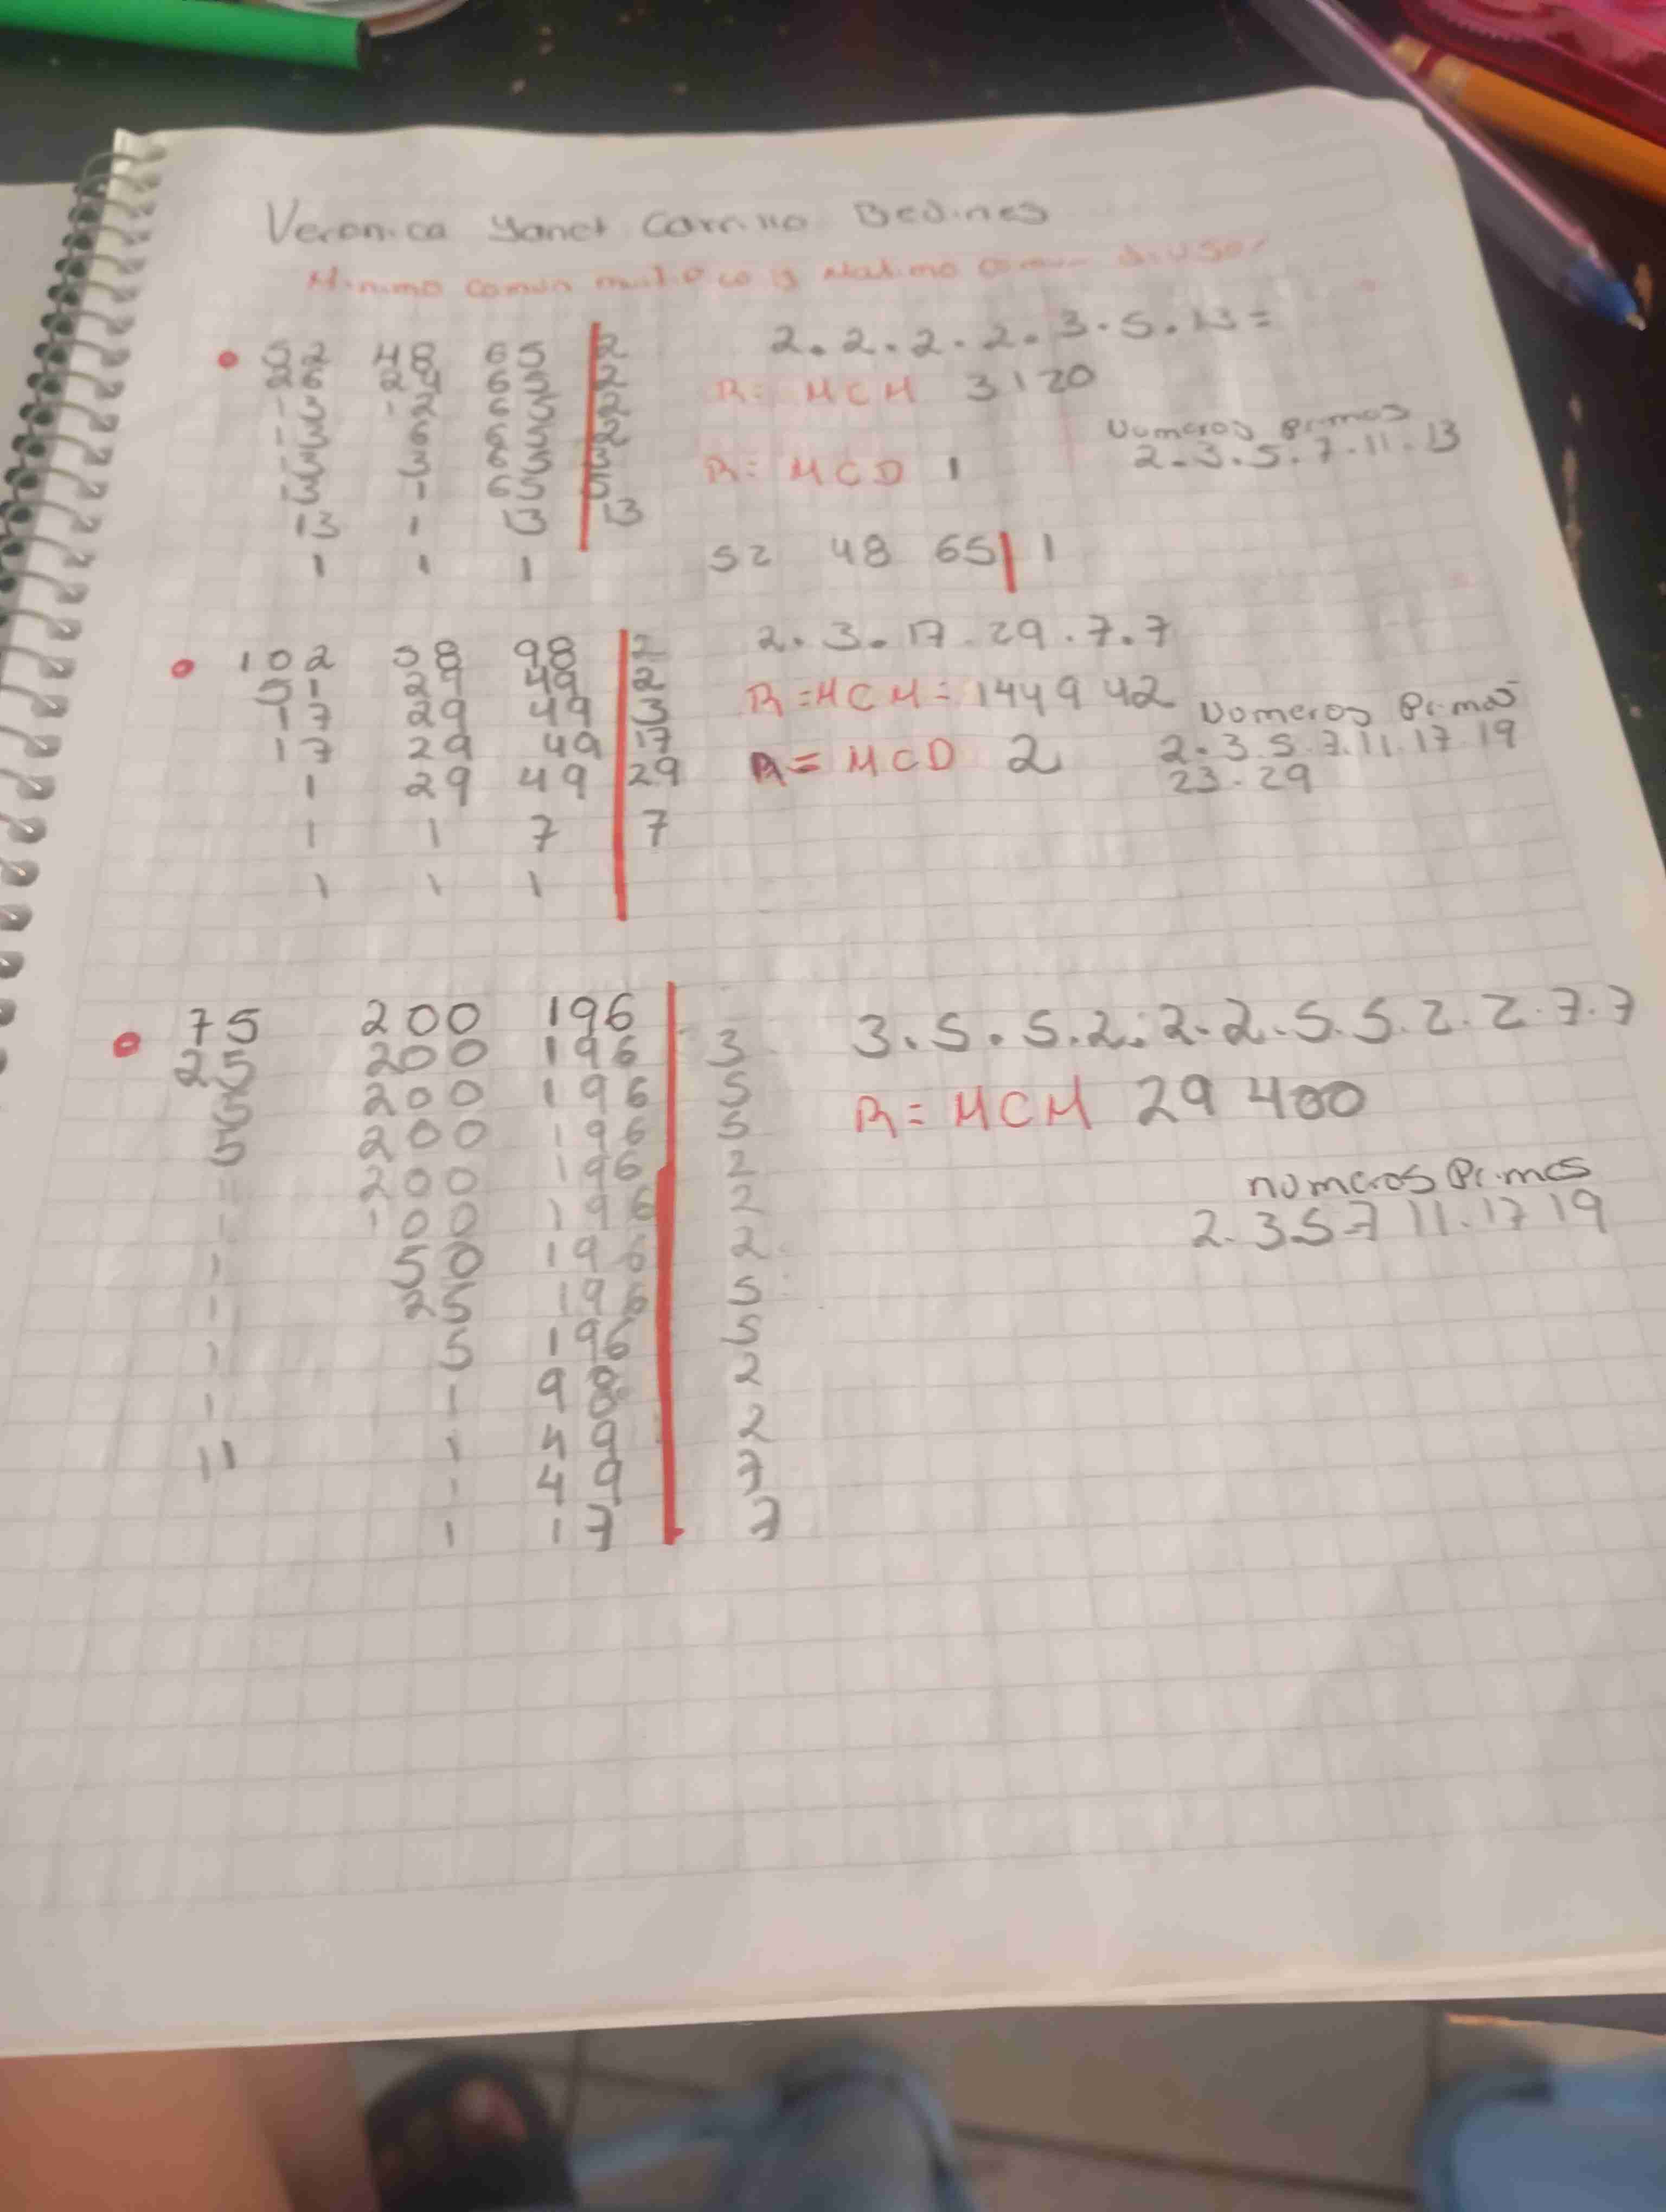 Veronica Yanet Carrillo Bedines
Minimo comun multiplo y Maximo comun divisor
52 48 65 | 2
26 24 65 | 2
13 12 65 | 2
13 6 65 | 2
13 3 65 | 3
13 1 65 | 5
13 1 13 | 13
1 1 1
2.2.2.2.3.5.13=
R= MCM 3120
R= MCD 1
Numeros primos
2.3.5.7.11.13
52 48 65 | 1
102 58 98 | 2
51 29 49 | 2
17 29 49 | 3
17 29 49 | 17
1 29 49 | 29
1 1 7 | 7
1 1 1
2.3.17.29.7.7
R=MCM=144942
R=MCD 2
Numeros Primos
2.3.5.7.11.17.19
23.29
75 200 196
25 200 196 | 3
200 196 | 5
5 200 196 | 5
200 196 | 2
1 100 196 | 2
1 50 196 | 2
1 25 196 | 5
1 5 196 | 5
1 1 98 | 2
11 1 49 | 2
1 49 | 7
1 17 | 7
3.5.5.2.2.2.5.5.2.2.7.7
R=MCM 29400
numeros Primos
2.3.5.7 11.17 19